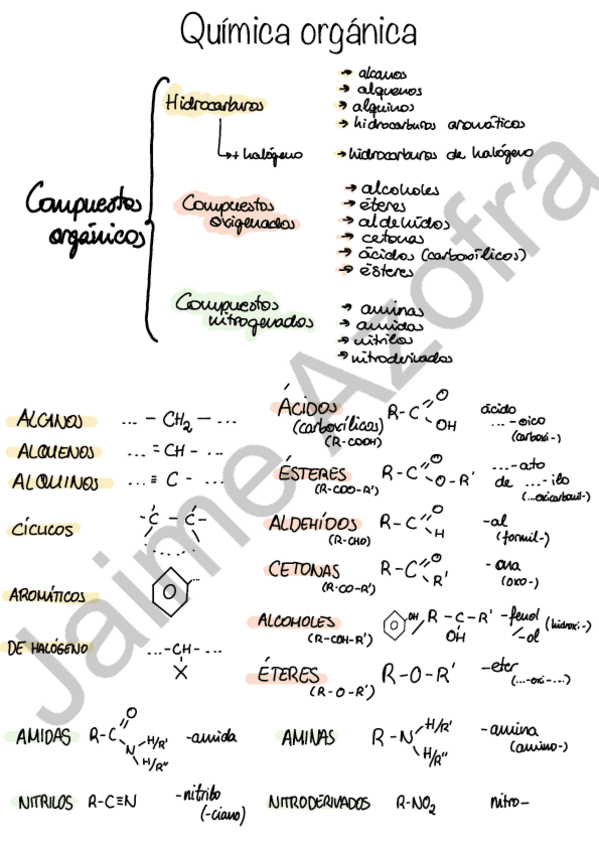 Química orgánica
Compuestos
orgánicos
Hidrocarburos
→ alcanos
→ alquenos
→ alquinos
→ hidrocarburos aromáticos
→ + halógeno → hidrocarburos de halógeno
Compuestos
oxigenados
→ alcoholes
→ éteres
→ aldehídos
→ cetonas
→ ácidos (carboxílicos)
→ ésteres
Compuestos
nitrogenados
→ aminas
→ amidas
→ nitrilos
→ nitroderivados
ALCANOS ... - CH2 - ...
ALQUENOS ... = CH - ...
ALQUINOS ... ≡ C - ...
CÍCLICOS - C - C -
AROMÁTICOS
DE HALÓGENO ... - CH - ...
X
ÁCIDOS
(carboxílicos)
(R-COOH)
R - C O OH
ácido
... -oico
(carboxi-)
ÉSTERES
(R-COO-R')
R - C O O - R'
... -ato
de ... -ilo
(...oxicarbonil-)
ALDEHÍDOS
(R-CHO)
R - C O H
-al
(formil-)
CETONAS
(R-CO-R')
R - C O R'
-ona
(oxo-)
ALCOHOLES
(R-COH-R')
OH / R - C - R'
OH
-fenol
/-ol
(hidroxi-)
ÉTERES
(R-O-R')
R - O - R'
-eter
(...-oxi-...)
AMIDAS R - C O N H/R' H/R'' -amida
AMINAS R - N H/R' H/R'' -amina
(amino-)
NITRILOS R - C≡N -nitrilo
(-ciano)
NITRODERIVADOS R-NO2 nitro-
Jaime Azofra